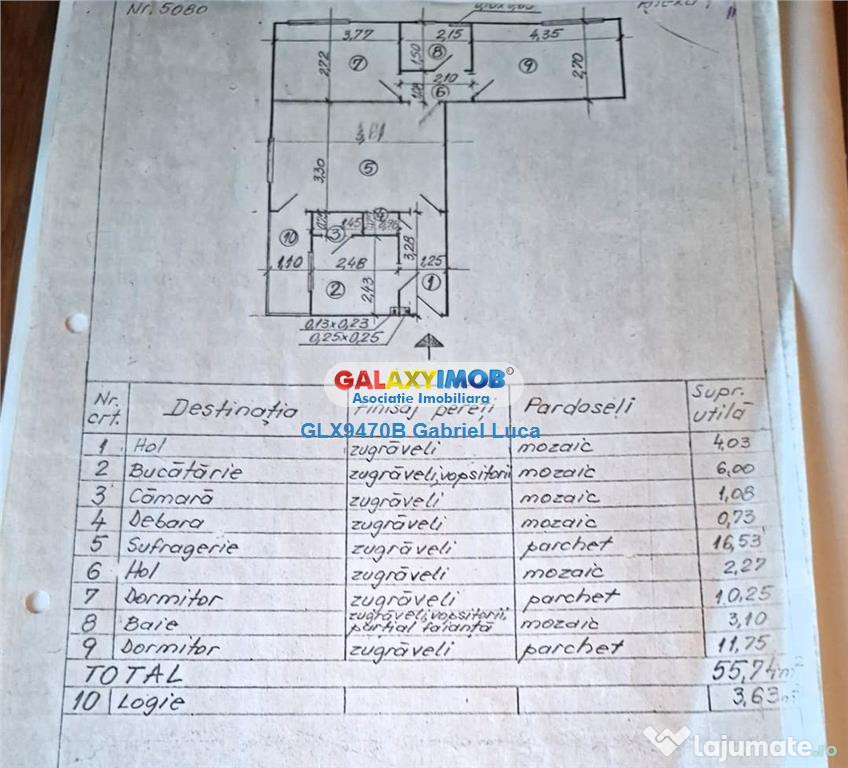 Nr. 5080
3,77
2,15
4,35
1,50
8
2,72
7
9
2,70
2,10
6
5
3,30
1,45
3
10
3,28
1,10
2,48
1,25
2
2,43
1
0,13x0,23
0,25x0,25
GALAXYIMOB
Asociatie Imobiliara
GLX9470B Gabriel Luca
Nr. crt. Destinația Finisaj pereți Pardoseli Supr. utilă
1 Hol zugrăveli mozaic 4,03
2 Bucătărie zugrăveli, vopsitorii mozaic 6,00
3 Cămară zugrăveli mozaic 1,08
4 Debara zugrăveli mozaic 0,73
5 Sufragerie zugrăveli parchet 16,53
6 Hol zugrăveli mozaic 2,27
7 Dormitor zugrăveli parchet 10,25
8 Baie zugrăveli, vopsitorii, parțial faianță mozaic 3,10
9 Dormitor zugrăveli parchet 11,75
TOTAL 55,74 m²
10 Logie 3,63 m²
lajumate.ro